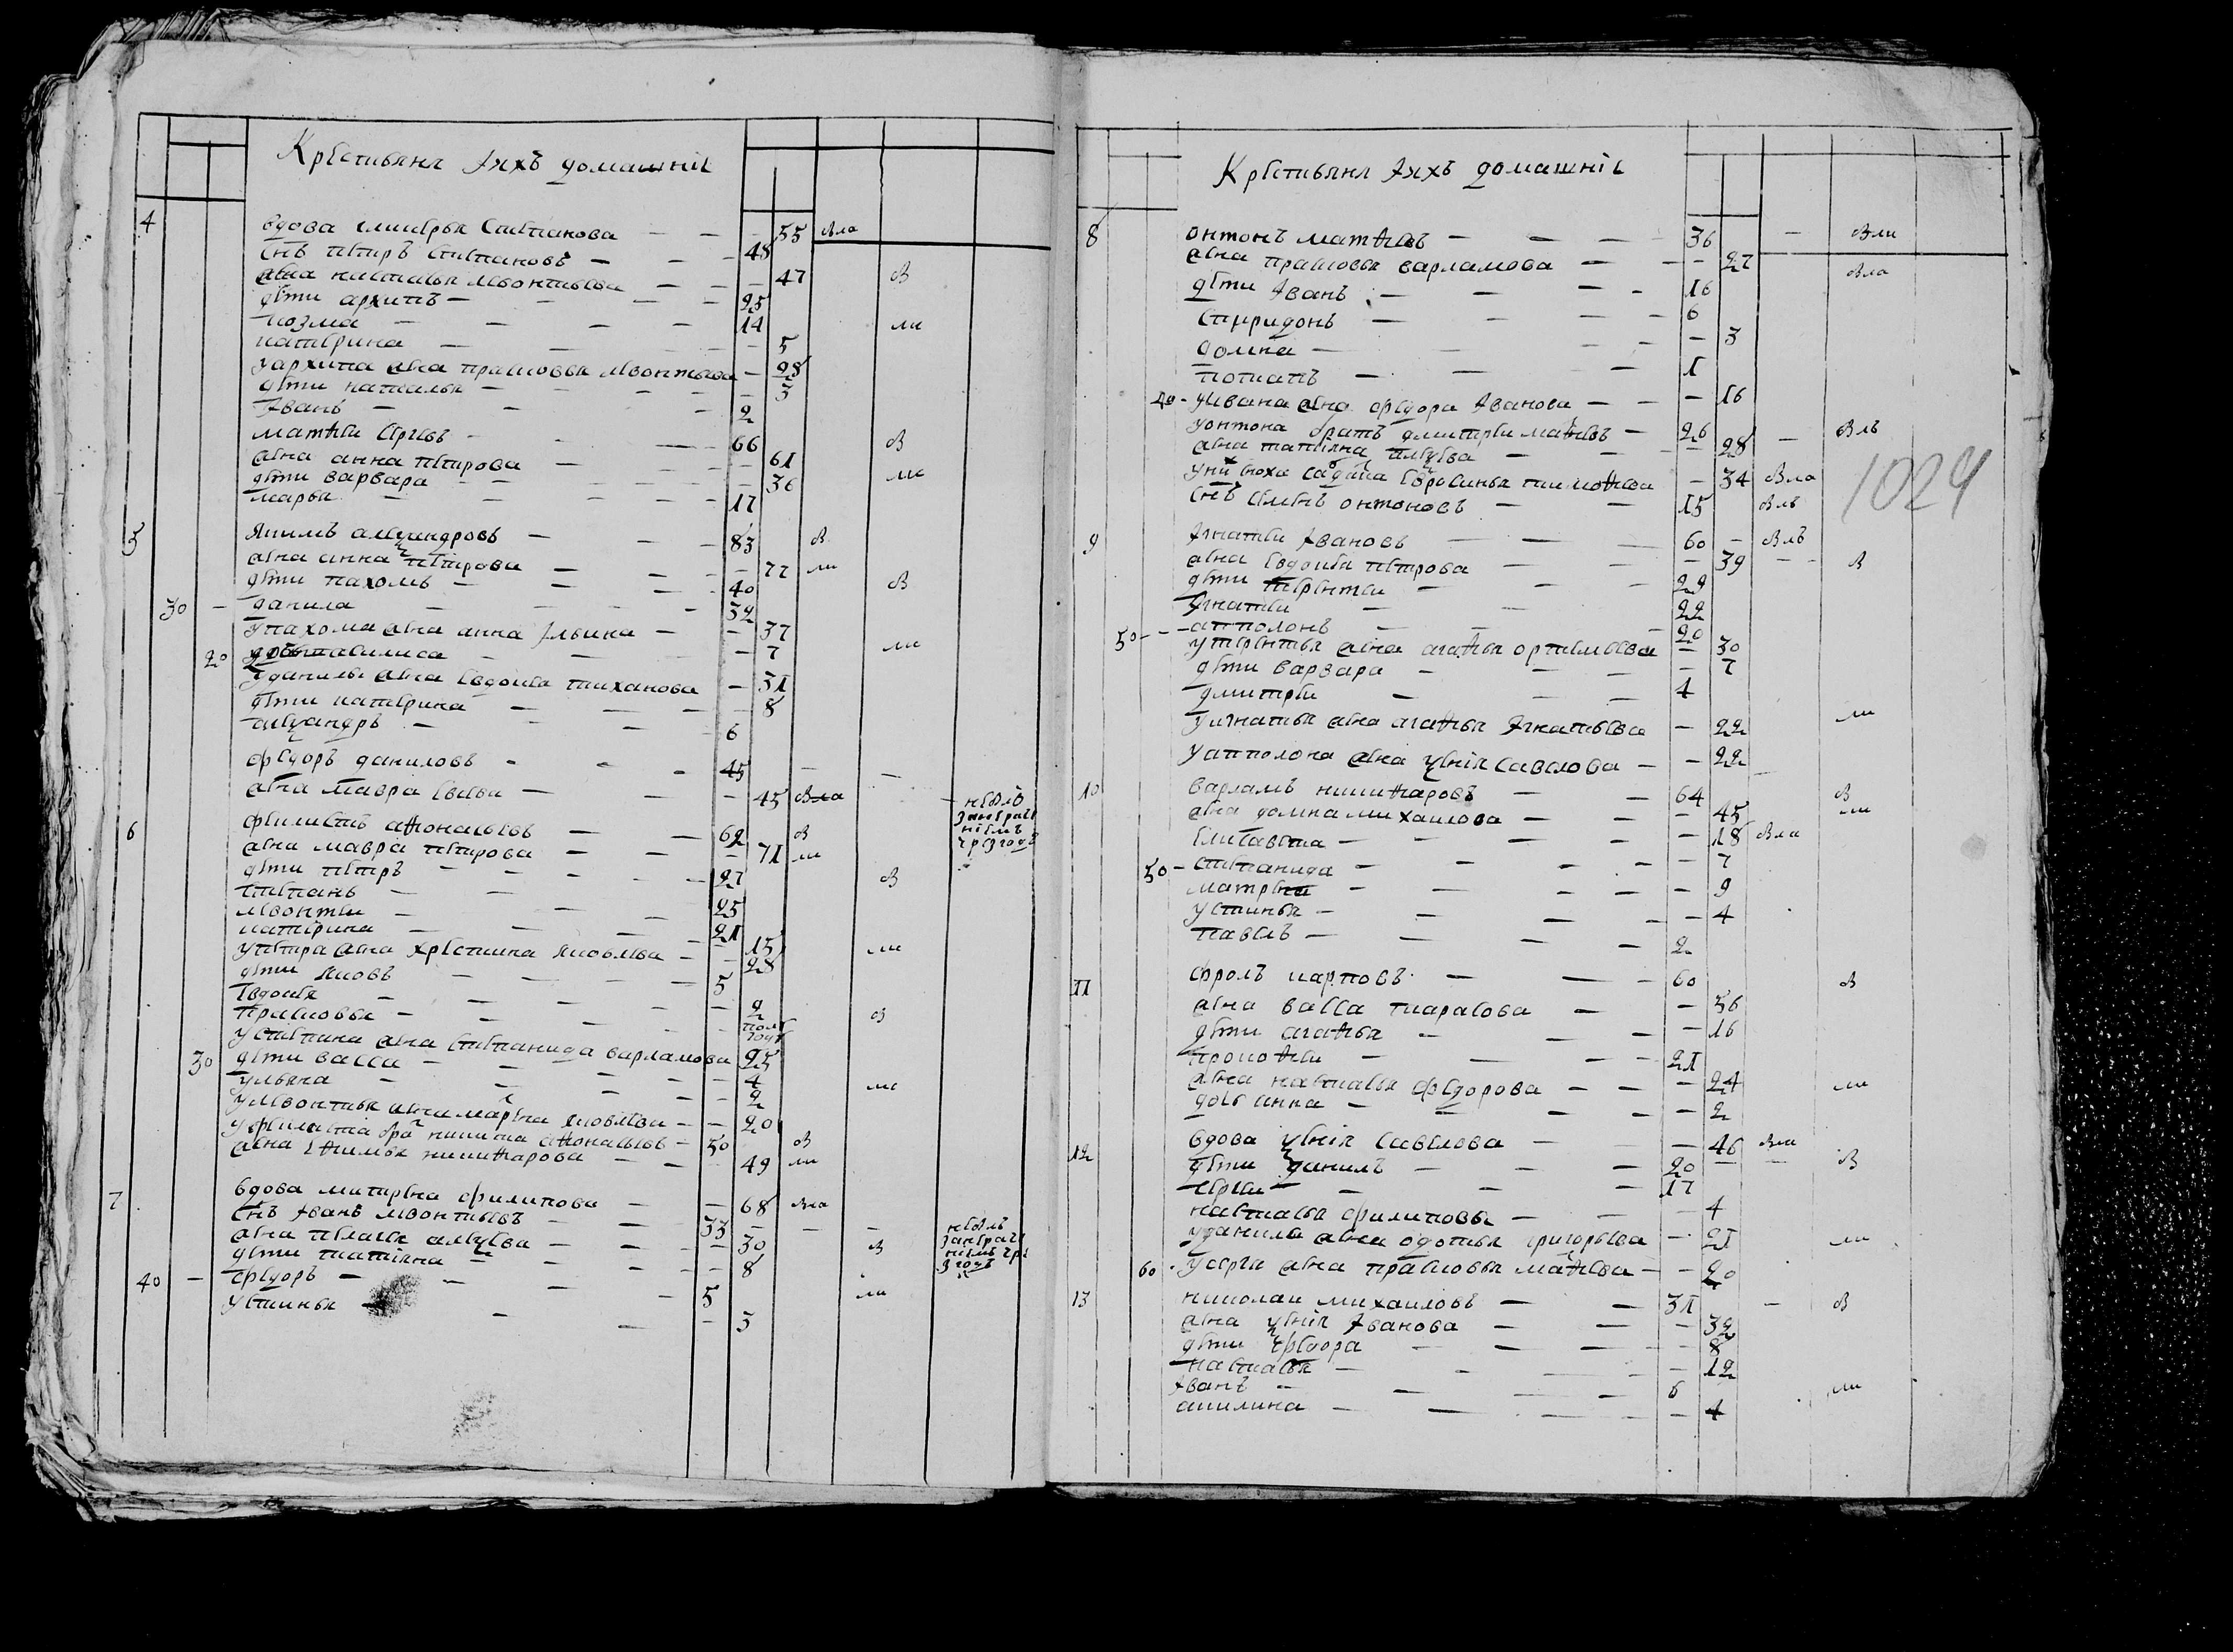 Крестьяня Iихъ домашнiе
4 вдова гликерья Степанова — — — 55 вла
снъ петръ Степановъ — — 48
жена настасья левонтьева — — 47 в
дети архипъ — — 25
козма — — 14 ли
катерина — — 5
у архипа жена прасковья левонтьева — 28
дети наталья — — 3
Iванъ — — 2
матθеи Сергеевъ — — 66 в
жена анна петрова — — 61
дети варвара — — 36 ли
марья — — 17
5 якимъ алеѯандровъ — — 83 в
жена анна петрова — — 77 ли
дети пахомъ — — 40 в
30 — данила — — 32
у пахома жена анна Iльина — — 37
20 василиса — — 7 ли
у данилы жена Евдокея тиханова — 31
дети катерина — — 8
алеѯандръ — — 6
федоръ даниловъ — — 45 — —
жена мавра — — 45 вла — небылъ
6 фелистъ аθонасьевъ — — 62 в
жена мавра петрова — — 71 ли
дети петръ — — 27 в
степанъ — — 25
левонтеи — — 21
катерина — — 15 ли
у петра жена хрестина яковлева — — 28
дети яковъ — — 5
Евдокея — — 2
прасковья — — полъ года в
у степана жена степанида варламова 25
30 дети васса — — 4
ульяна — — 2 ли
у левонтья жена марья яковлева — — 20
у фелиста бра никита аθонасьевъ — 50 в
жена никиθарова — — 49 ли
7 вдова матрена филипова — — 68 вла
снъ Iванъ левонтьевъ — — 33 — — — небылъ
жена пелагея алеѯева — — 30 в
дети татiяна — — 8
40 — федоръ — — 5 ли
устинья — — 3
Крестьяня Iихъ домашнiе
8 онтонъ матθеевъ — — — 36 — вли
жена прасковья варламова — — 27 вла
дети Iванъ — — 16
спиридонъ — — 6
домна — — 3
потапъ — — 1
40 - у ивана жена федора Iванова — — — 16
у онтона братъ дмитреи маθеевъ — 26 — влъ
жена татiяна алеѯева — — 28
тимоθеева — 34 вла
снъ семенъ онтоновъ — — 15 влъ
1024
9 Iгнатеи Iвановъ — — 60 — влъ
жена Евдокея петрова — — 39 — - в
дети терентеи — — 29
Iгнатеи — — 22
апполонъ — — 20
50 - - - у терентья жена агаθья ортемьева — 30
дети варвара — — 7
дмитреи — — 4
у игнатья жена агаθья Iгнатьева — 22 ли
у апполона жена ѯенiя савелова — — 22
10 варламъ никиθаровъ — — 64 в
жена домна михаилова — — — 45 ли
Елисавета — — 18 вла
50 - степанида — — 7
матрена — — 9
устинья — — 4
павелъ — — 2
11 фролъ карповъ — — 60 в
жена васса тарасова — — 56
дети агаθья — — 16
прокоθеи — — 21
жена настасья федорова — — — 24 ли
дочь анна — — 2
12 вдова ѯенiя савелова — — 46 вла
дети данилъ — — 20 — — в
сергеи — — 17
настасья филиповы — — 4
у данилы жена одотья григорьева — 21 ли
60 · у сергея жена прасковья маθеева — — 20
13 николаи михаиловъ — — 31 — в
жена ѯенiя Iванова — — — 32
дети федора — — 8
настасья — — 12
Iванъ — — 6 ли
акилина — — 4